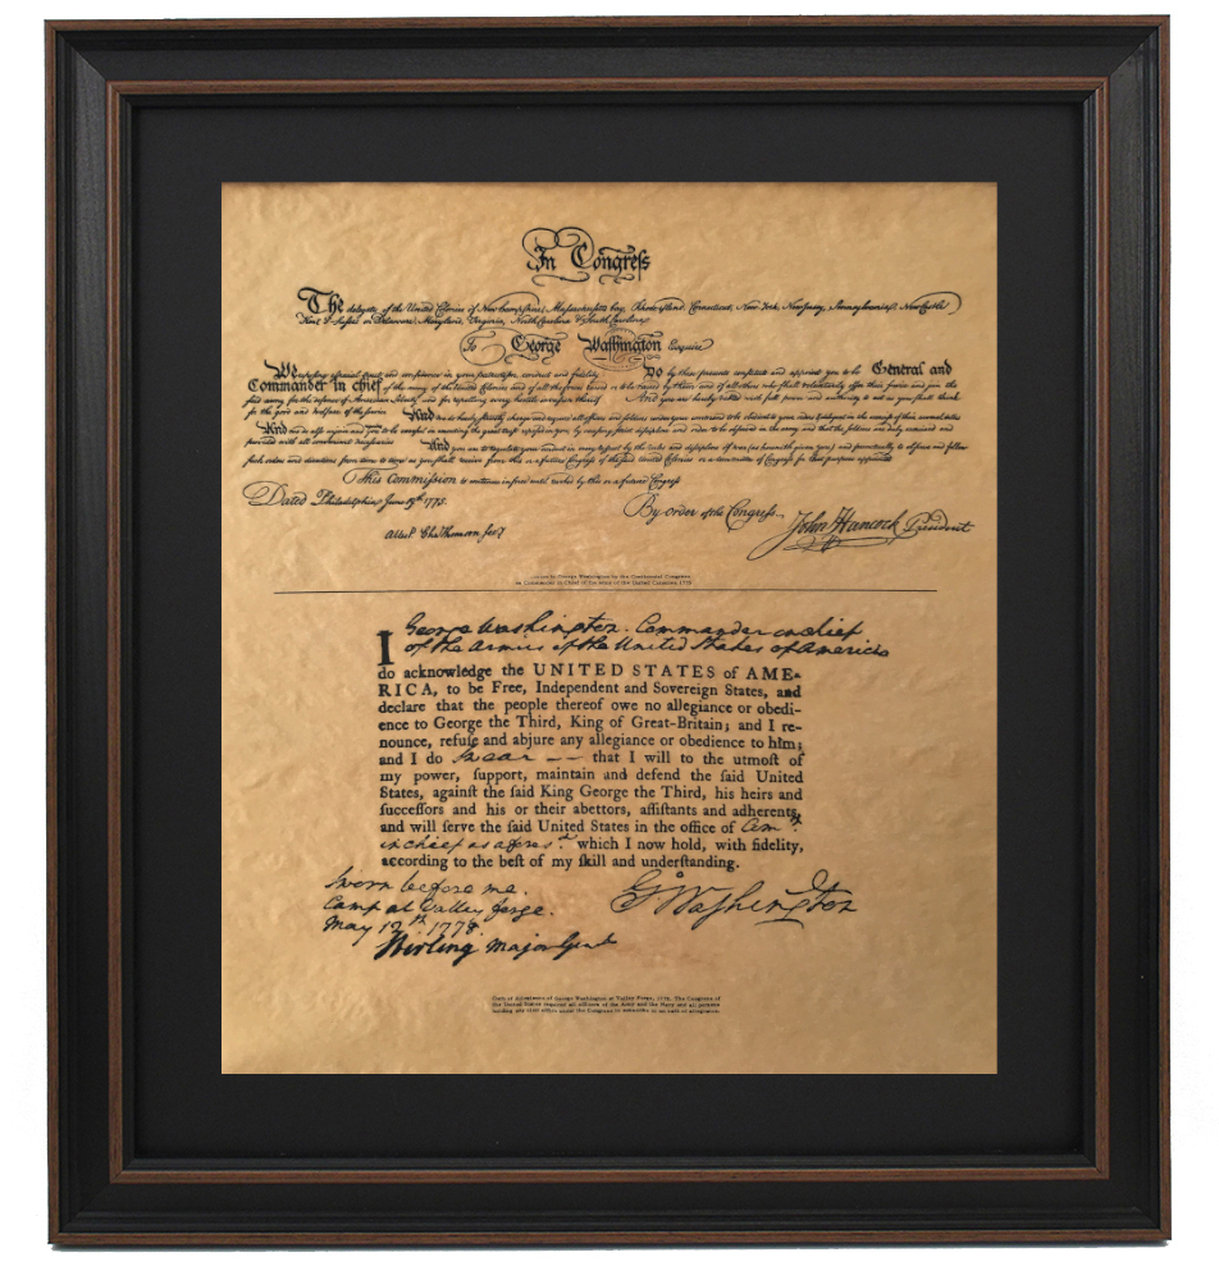 In Congreſs
The delegates of the United Colonies of New hampshire, Massachusetts bay, Rhode island, Connecticut, New York, New Jersey, Pennsylvania, New Castle
Kent & Sussex on Delaware, Maryland, Virginia, North Carolina & South Carolina
To George Washington Esquire
We reposing especial trust and confidence in your patriotism, conduct and fidelity Do by these presents constitute and appoint you to be General and
Commander in chief of the army of the United Colonies and of all the forces raised or to be raised by them and of all others who shall voluntarily offer their service and join the
said army for the defence of American liberty and for repelling every hostile invasion thereof And you are hereby vested with full power and authority to act as you shall think
for the good and welfare of the service And we do hereby strictly charge and require all officers and soldiers under your command to be obedient to your orders & diligent in the exercise of their several duties
And we do also enjoin and require you to be careful in executing the great trust reposed in you, by causing strict discipline and order to be observed in the army and that the soldiers are duly exercised and
provided with all convenient necessaries And you are to regulate your conduct in every respect by the rules and discipline of war (as herewith given you) and punctually to observe and follow
such orders and directions from time to time as you shall receive from this or a future Congress of the said United Colonies or a committee of Congress for that purpose appointed
This Commission to continue in force until revoked by this or a future Congress
Dated Philadelphia June 19th 1775.
By order of the Congress.
John Hancock President
Attest Cha Thomson Secy
to George Washington by the Continental Congress
as Commander in Chief of the Army of the United Colonies 1775
I George Washington. Commander in chief
of the Armies of the United States of America
do acknowledge the UNITED STATES of AME-
RICA, to be Free, Independent and Sovereign States, and
declare that the people thereof owe no allegiance or obedi-
ence to George the Third, King of Great-Britain; and I re-
nounce, refuſe and abjure any allegiance or obedience to him;
and I do swear —— that I will to the utmoſt of
my power, ſupport, maintain and defend the ſaid United
States, againſt the ſaid King George the Third, his heirs and
ſucceſſors and his or their abettors, aſſiſtants and adherents,
and will ſerve the ſaid United States in the office of Com.r
in chief as afores.d which I now hold, with fidelity,
according to the beſt of my ſkill and underſtanding.
Sworn before me.
Camp at Valley forge.
May 12th 1778.
Stirling Major Genl
G.o Washington
Oath of Allegiance of George Washington at Valley Forge, 1778. The Congress of
the United States required all officers of the Army and the Navy and all persons
holding any civil office under the Congress to subscribe to an oath of allegiance.